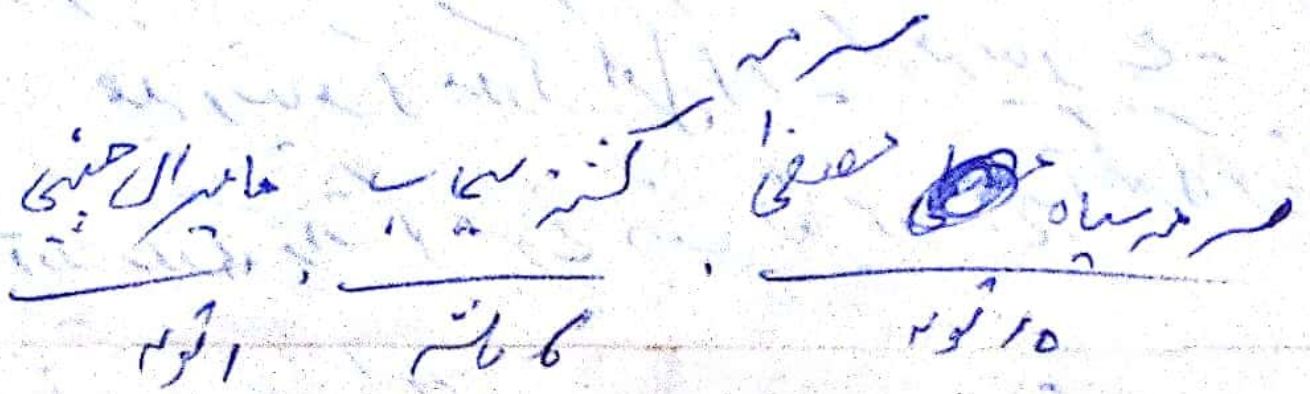 سرمہ
سرمہ سیاہ مصفیٰ کشتہ سیماب مامیراں چینی
۱۵ تولہ ۶ ماشہ ۱ تولہ